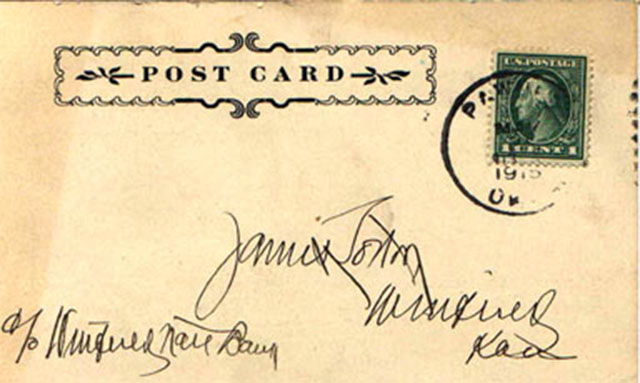 POST CARD
U.S. POSTAGE
1 CENT 1
191
James
Winfield
Kas
c/o Winfield Natl Bank